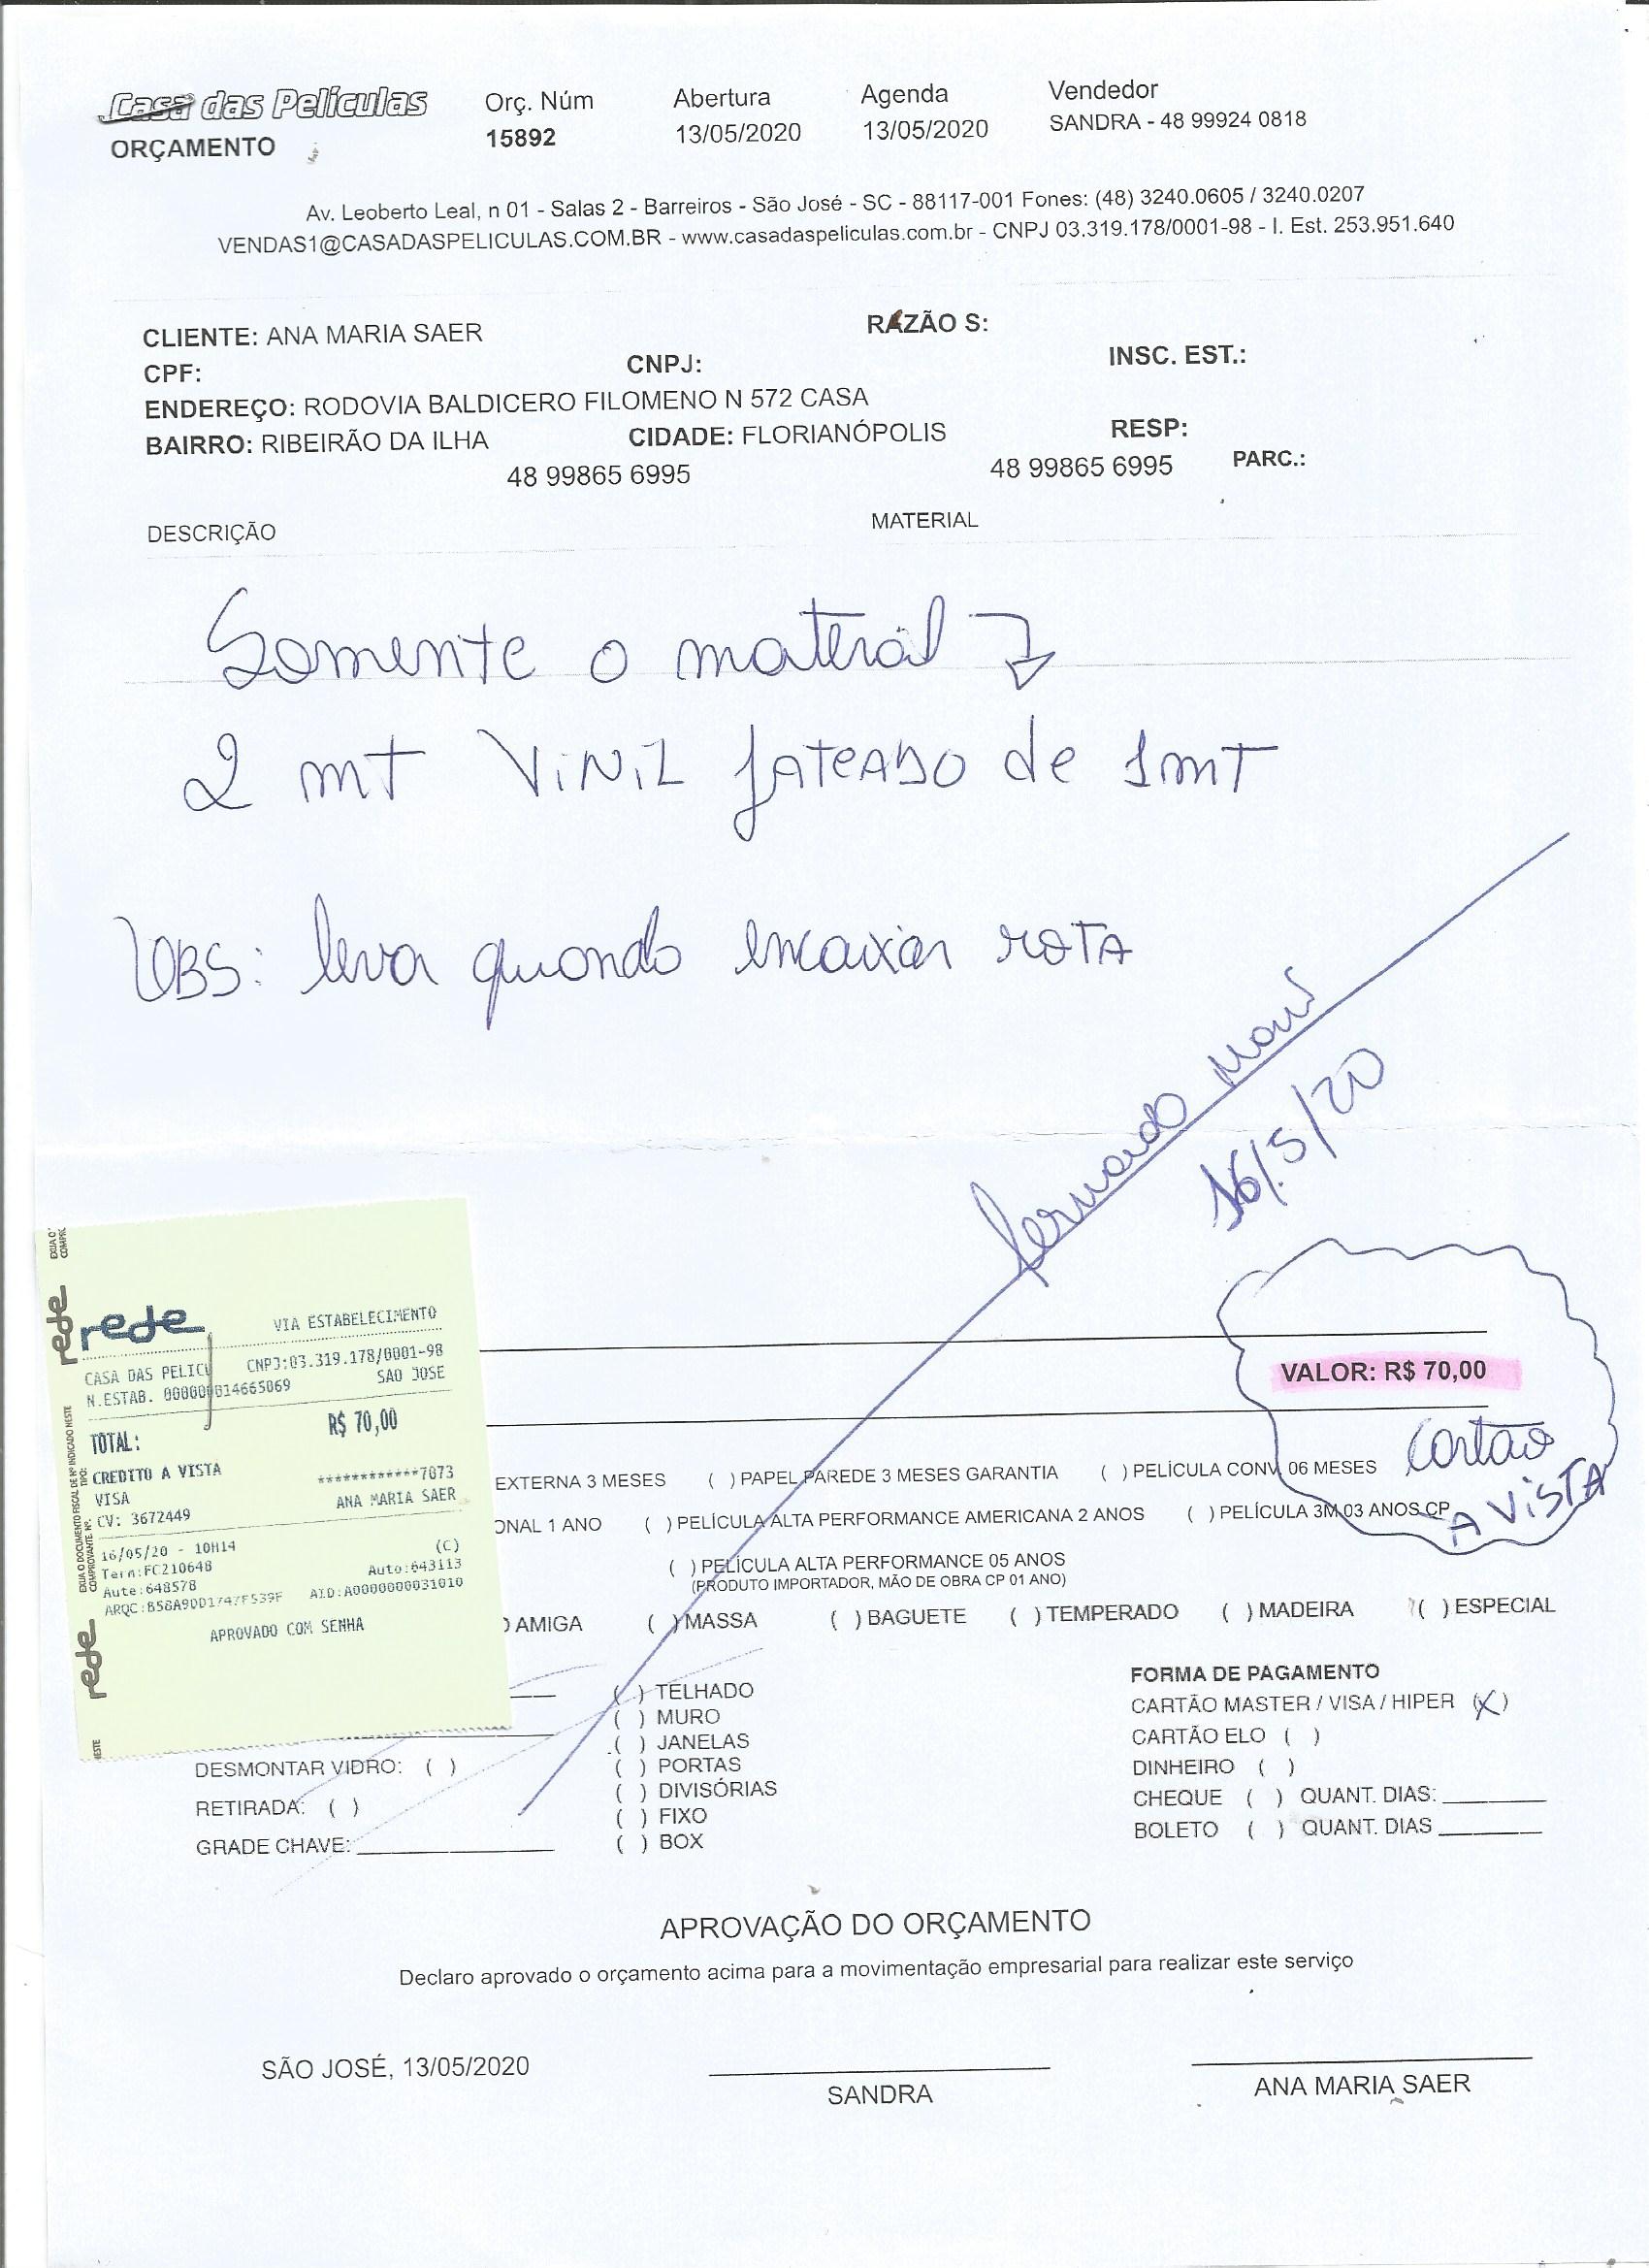 Casa das Películas
ORÇAMENTO
Orç. Núm
15892
Abertura
13/05/2020
Agenda
13/05/2020
Vendedor
SANDRA - 48 99924 0818
Av. Leoberto Leal, n 01 - Salas 2 - Barreiros - São José - SC - 88117-001 Fones: (48) 3240.0605 / 3240.0207
VENDAS1@CASADASPELICULAS.COM.BR - www.casadaspeliculas.com.br - CNPJ 03.319.178/0001-98 - I. Est. 253.951.640
CLIENTE: ANA MARIA SAER RAZÃO S:
CPF: CNPJ: INSC. EST.:
ENDEREÇO: RODOVIA BALDICERO FILOMENO N 572 CASA
BAIRRO: RIBEIRÃO DA ILHA CIDADE: FLORIANÓPOLIS RESP:
48 99865 6995 48 99865 6995 PARC.:
DESCRIÇÃO MATERIAL
Somente o material
2 mt ViNiL jateado de 1mt
OBS: leva quando encaixar rota
Fernando
16/5/20
rede
VIA ESTABELECIMENTO
CASA DAS PELICU CNPJ:03.319.178/0001-98
N.ESTAB. 000000014665069 SAO JOSE
TOTAL: R$ 70,00
CREDITO A VISTA ************7073
VISA ANA MARIA SAER
CV: 3672449
16/05/20 - 10H14 (C)
Term:FC210648 Auto:643113
Aute:648578 AID:A0000000031010
ARQC:B58A90D1747F539F
APROVADO COM SENHA
rede
rede
VALOR: R$ 70,00
Cartão
A ViSTA
EXTERNA 3 MESES ( ) PAPEL PAREDE 3 MESES GARANTIA ( ) PELÍCULA CONV. 06 MESES
ONAL 1 ANO ( ) PELÍCULA ALTA PERFORMANCE AMERICANA 2 ANOS ( ) PELÍCULA 3M 03 ANOS CP
( ) PELÍCULA ALTA PERFORMANCE 05 ANOS
(PRODUTO IMPORTADOR, MÃO DE OBRA CP 01 ANO)
O AMIGA ( ) MASSA ( ) BAGUETE ( ) TEMPERADO ( ) MADEIRA ( ) ESPECIAL
DESMONTAR VIDRO: ( )
RETIRADA: ( )
GRADE CHAVE:
( ) TELHADO
( ) MURO
( ) JANELAS
( ) PORTAS
( ) DIVISÓRIAS
( ) FIXO
( ) BOX
FORMA DE PAGAMENTO
CARTÃO MASTER / VISA / HIPER (X)
CARTÃO ELO ( )
DINHEIRO ( )
CHEQUE ( ) QUANT. DIAS:
BOLETO ( ) QUANT. DIAS
APROVAÇÃO DO ORÇAMENTO
Declaro aprovado o orçamento acima para a movimentação empresarial para realizar este serviço
SÃO JOSÉ, 13/05/2020
SANDRA
ANA MARIA SAER